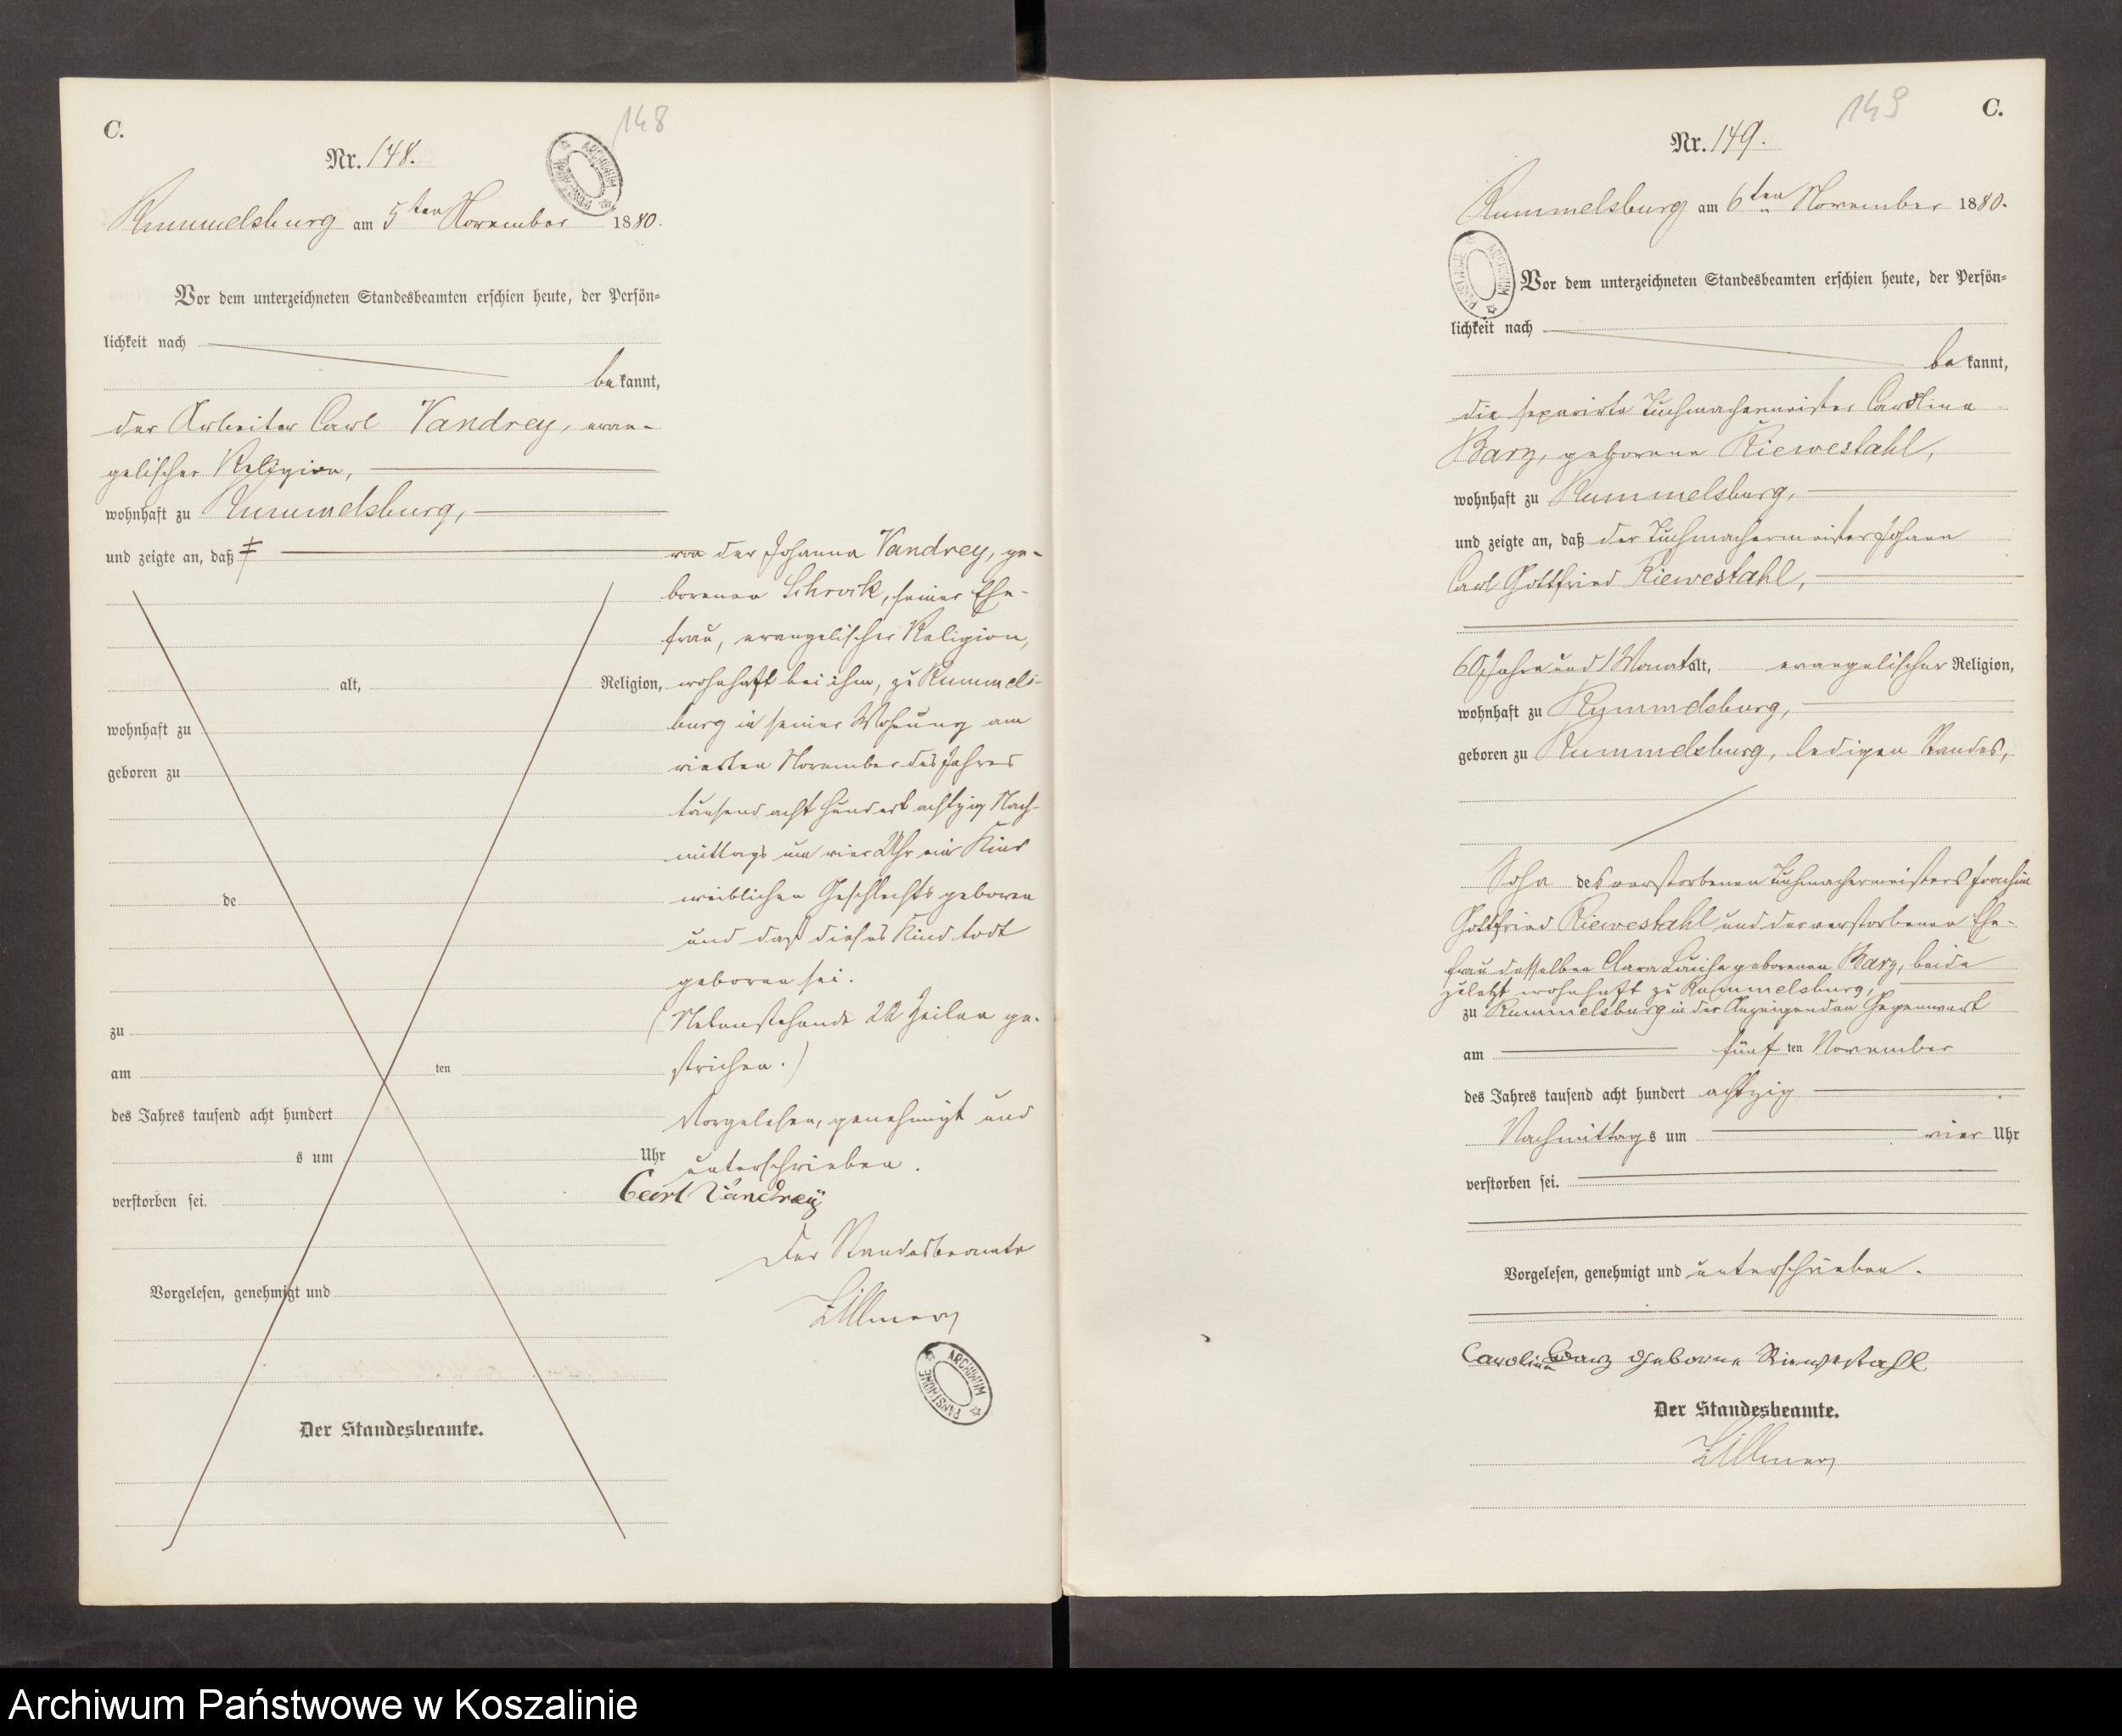 C.
148
Nr. 148.
ARCHIWUM PAŃSTWOWE
Rummelsburg am 5ten November 1880.
Vor dem unterzeichneten Standesbeamten erschien heute, der Persön-
lichkeit nach
bekannt,
der Arbeiter Carl Vandrey, evan-
gelischer Religion,
wohnhaft zu Rummelsburg,
und zeigte an, daß
von der Johanna Vandrey, ge-
borenen Schrock, seiner Ehe-
frau, evangelischer Religion,
alt, Religion,
wohnhaft bei ihm, zu Rummels-
wohnhaft zu
burg in seiner Wohnung am
geboren zu
vierten November des Jahres
tausend acht hundert achtzig Nach-
mittags um vier Uhr ein Kind
de
weiblichen Geschlechts geboren
und daß dieses Kind todt
geboren sei.
zu
(Nebenstehende 22 Zeilen ge-
am ten
strichen.)
des Jahres tausend acht hundert
Vorgelesen, genehmigt und
s um Uhr
unterschrieben.
verstorben sei.
Carl Vandrey
Der Standesbeamte
Vorgelesen, genehmigt und
Zillmer
ARCHIWUM PAŃSTWOWE
Der Standesbeamte.
149
C.
Nr. 149.
Rummelsburg am 6ten November 1880.
ARCHIWUM PAŃSTWOWE
Vor dem unterzeichneten Standesbeamten erschien heute, der Persön-
lichkeit nach
bekannt,
die separirte Tuchmachermeister Caroline
Barz, geborene Riewestahl,
wohnhaft zu Rummelsburg,
und zeigte an, daß der Tuchmachermeister Johann
Carl Gottfried Riewestahl,
60 Jahre und 1 Monat alt, evangelischer Religion,
wohnhaft zu Rummelsburg,
geboren zu Rummelsburg, ledigen Standes,
Sohn des verstorbenen Tuchmachermeisters Joachim
Gottfried Riewestahl und der verstorbenen Ehe-
frau desselben Clara Louise geborenen Barz, beide
zuletzt wohnhaft zu Rummelsburg,
zu Rummelsburg in der Anzeigenden Gegenwart
am fünf ten November
des Jahres tausend acht hundert achtzig
Nachmittags um vier Uhr
verstorben sei.
Vorgelesen, genehmigt und unterschrieben.
Caroline Barz geborne Riewestahl
Der Standesbeamte.
Zillmer
Archiwum Państwowe w Koszalinie